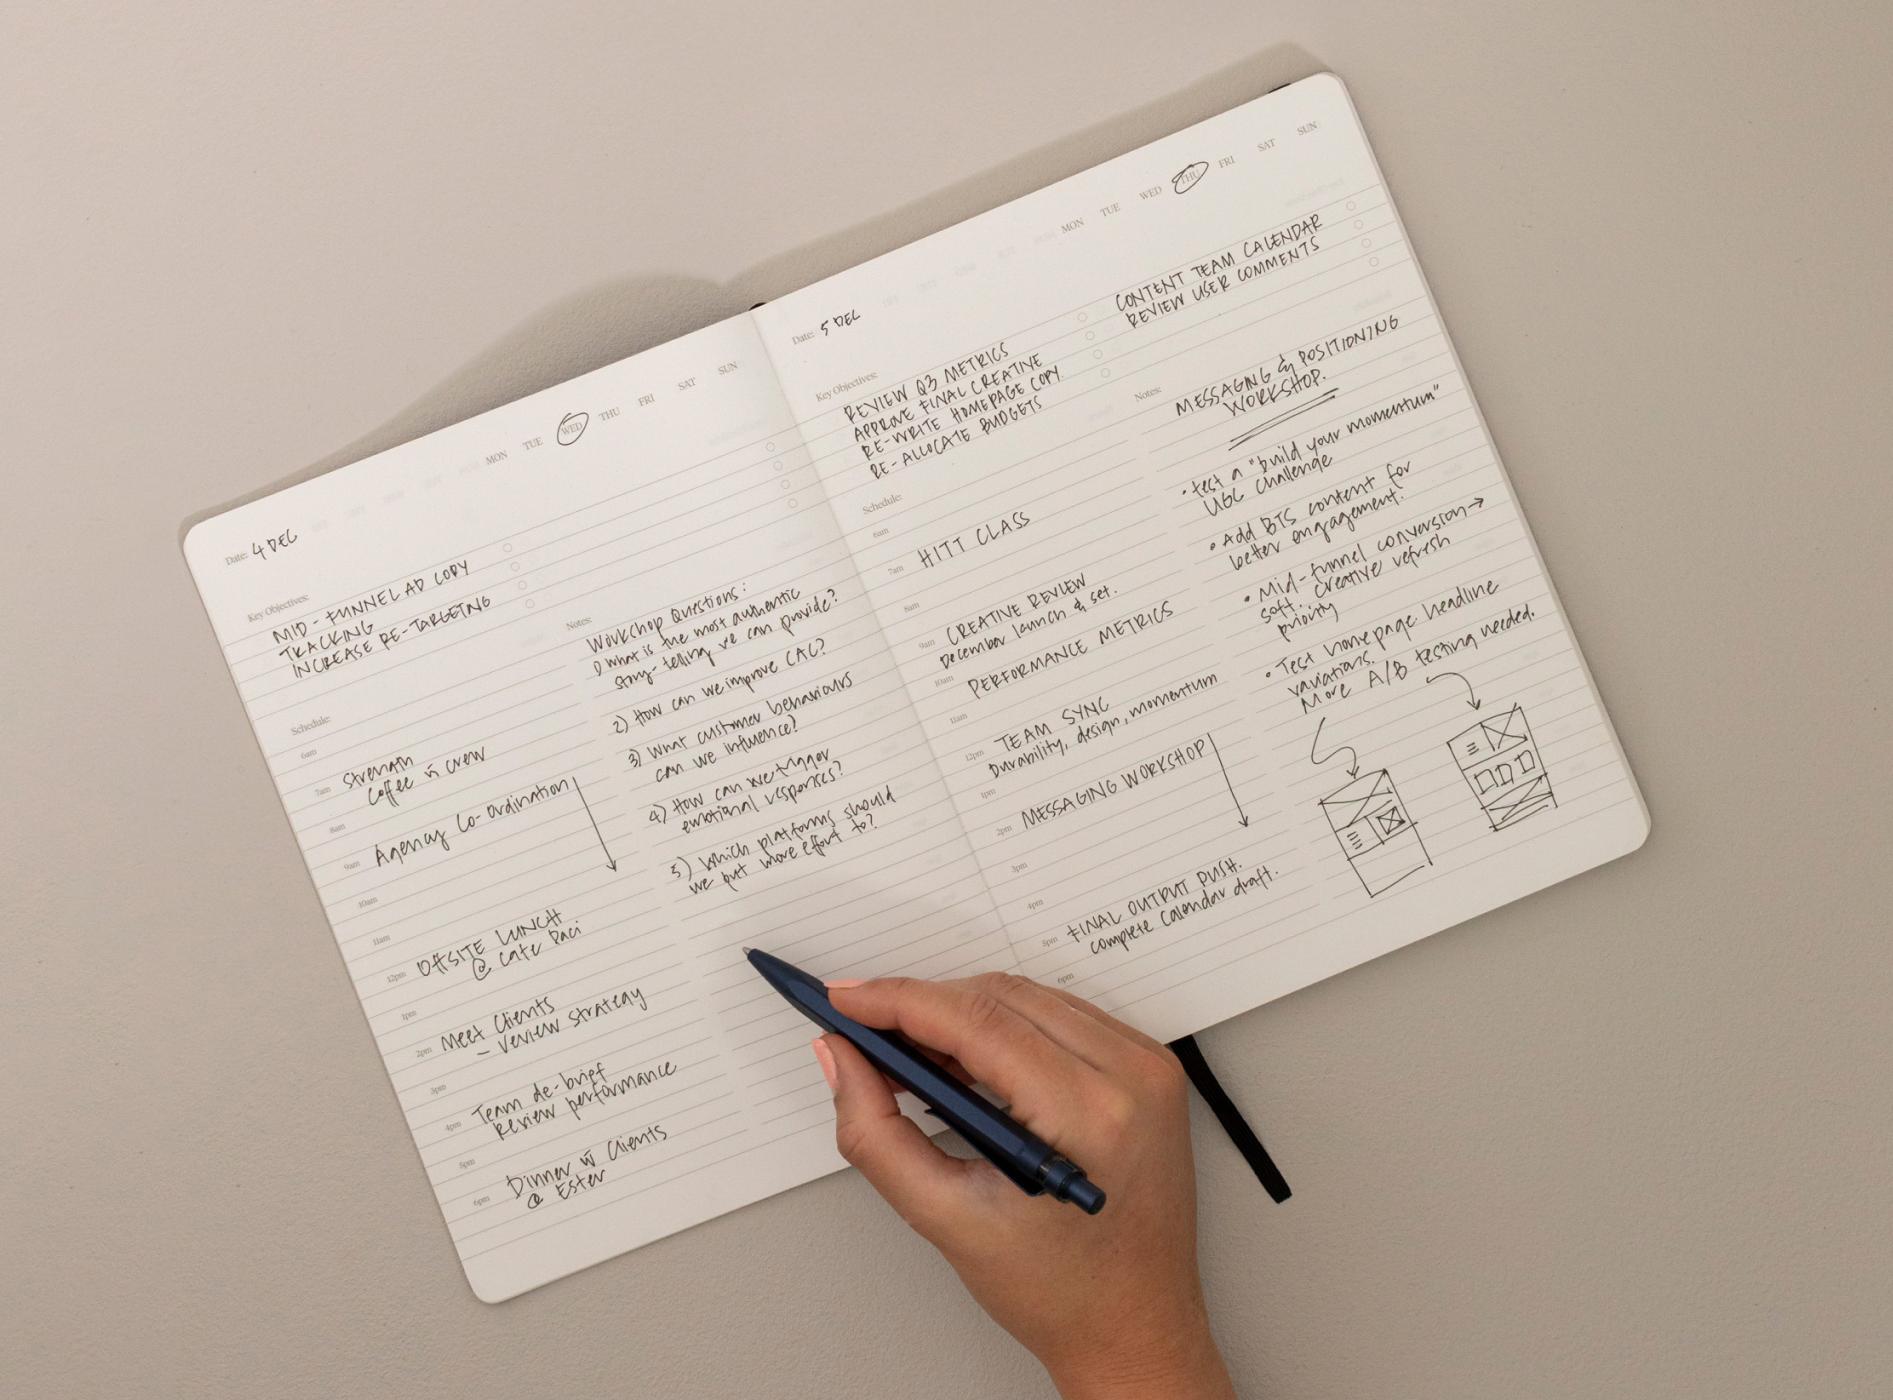 MON TUE WED THU FRI SAT SUN
Date: 4 DEC
Key Objectives:
MID-FUNNEL AD COPY
TRACKING
INCREASE RE-TARGETING
Schedule:
6am
7am Strength
Coffee w crew
8am
9am Agency Co-ordination
10am
11am
12pm OFFSITE LUNCH
@ Cafe Paci
1pm
2pm Meet Clients
- review strategy
3pm
4pm Team de-brief
Review performance
5pm
6pm Dinner w Clients
@ Ester
Notes:
Workshop Questions:
1) What is the most authentic
story-telling we can provide?
2) How can we improve CAC?
3) What customer behaviours
can we influence?
4) How can we trigger
emotional responses?
5) Which platforms should
we put more effort to?
MON TUE WED THU FRI SAT SUN
Date: 5 DEC
Key Objectives:
REVIEW Q3 METRICS
APPROVE FINAL CREATIVE
RE-WRITE HOMEPAGE COPY
RE-ALLOCATE BUDGETS
CONTENT TEAM CALENDAR
REVIEW USER COMMENTS
Schedule:
6am
7am HITT CLASS
8am
9am CREATIVE REVIEW
December launch & set.
10am PERFORMANCE METRICS
11am
12pm TEAM SYNC
Durability, design, momentum
1pm
2pm MESSAGING WORKSHOP
3pm
4pm
5pm FINAL OUTPUT PUSH.
complete calendar draft.
6pm
Notes:
MESSAGING & POSITIONING
WORKSHOP.
• Test a "build your momentum"
UGC challenge
• Add BTS content for
better engagement.
• Mid-funnel conversion →
soft. creative refresh
priority
• Test homepage headline
variations.
More A/B testing needed.